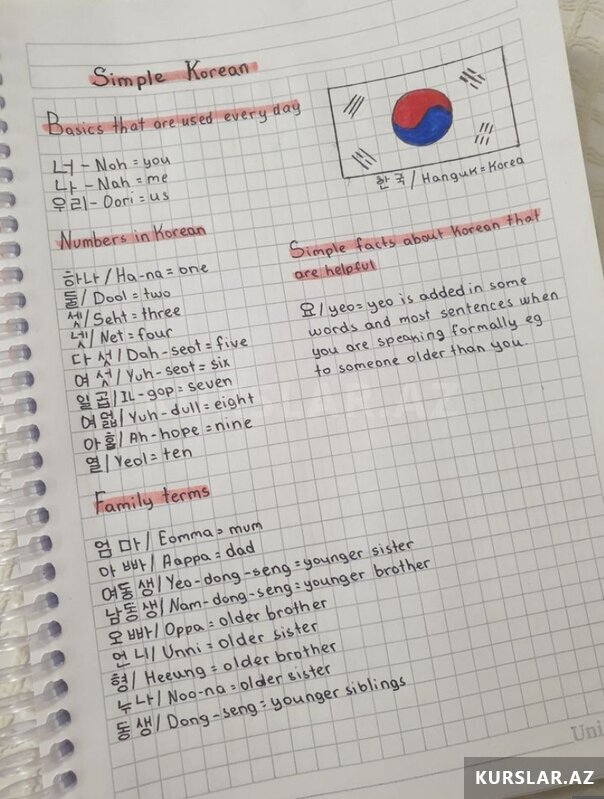 Simple Korean
Basics that are used every day
너 - Noh = you
나 - Nah = me
우리 - Oori = us
한국 / Hanguk = Korea
Numbers in Korean
하나 / Ha-na = one
둘 / Dool = two
셋 / Seht = three
넷 / Net = four
다섯 / Dah-seot = five
여섯 / Yuh-seot = six
일곱 / IL-gop = seven
여덟 / Yuh-dull = eight
아홉 / Ah-hope = nine
열 / Yeol = ten
Simple facts about Korean that
are helpful
요 / yeo = yeo is added in some
words and most sentences when
you are speaking formally eg
to someone older than you.
Family terms
엄마 / Eomma = mum
아빠 / Aappa = dad
여동생 / Yeo-dong-seng = younger sister
남동생 / Nam-dong-seng = younger brother
오빠 / Oppa = older brother
언니 / Unni = older sister
형 / Heeung = older brother
누나 / Noo-na = older sister
동생 / Dong-seng = younger siblings
Uni
KURSLAR.AZ